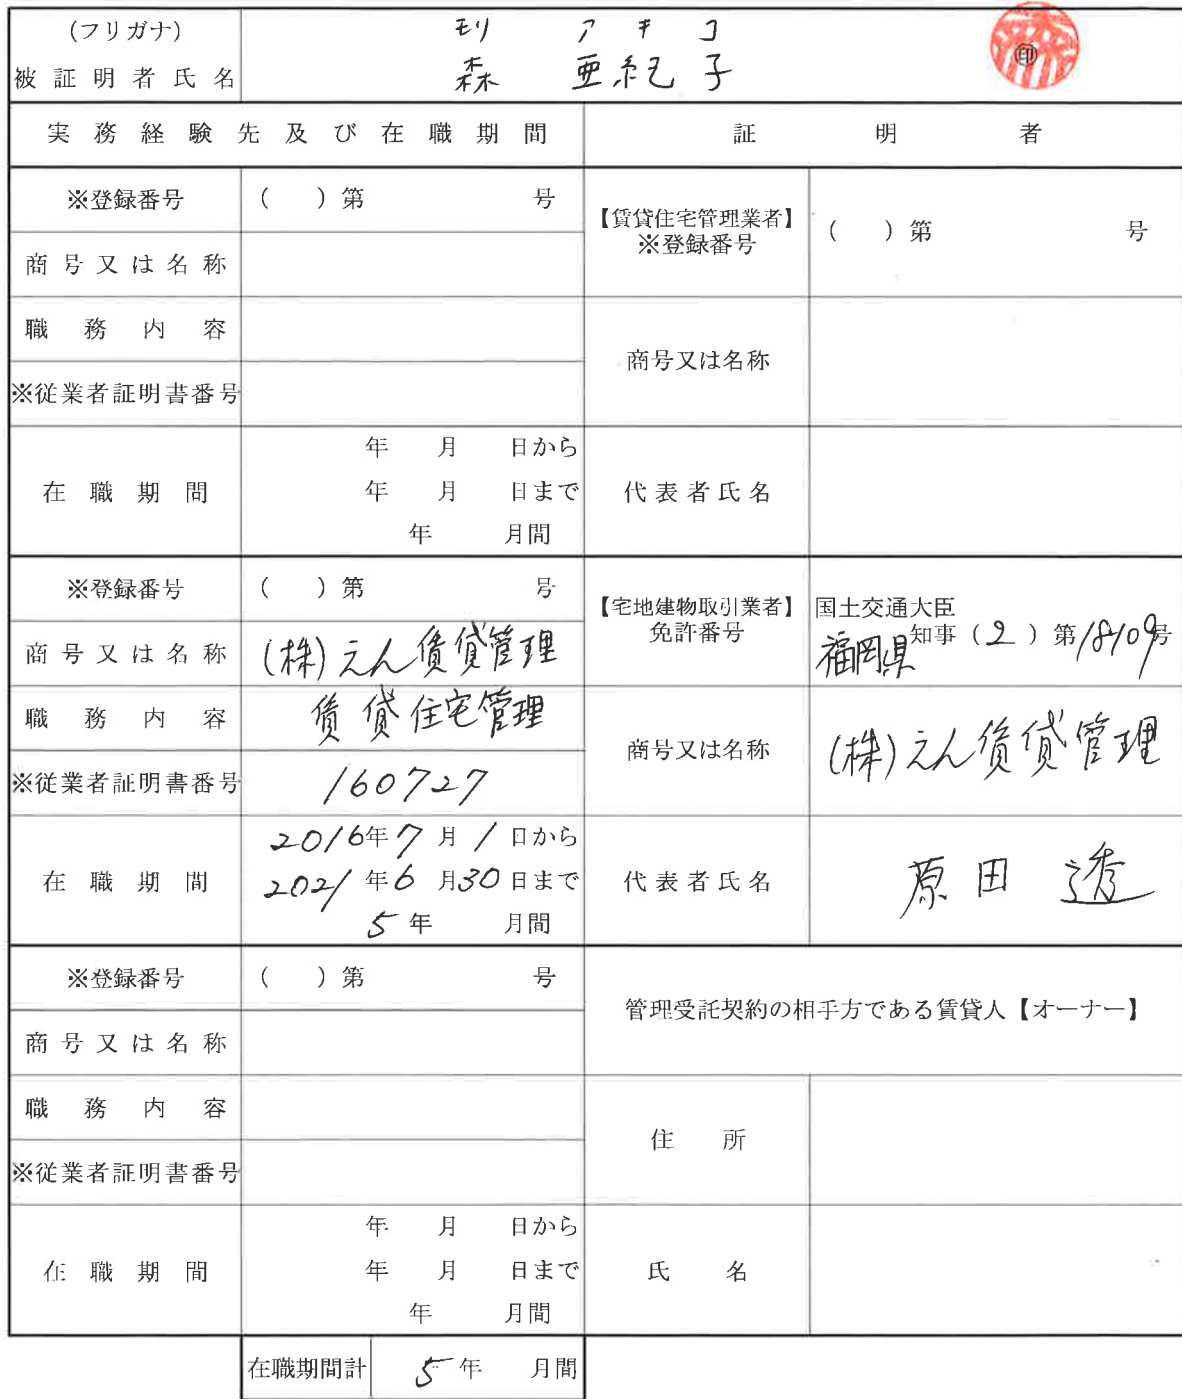 (フリガナ) モリ アキコ
被証明者氏名 森 亜紀子 印
実務経験先及び在職期間 証明者
※登録番号 ( )第 号
商号又は名称
職務内容
※従業者証明書番号
在職期間
年 月 日から
年 月 日まで
年 月間
【賃貸住宅管理業者】
※登録番号 ( )第 号
商号又は名称
代表者氏名
※登録番号 ( )第 号
商号又は名称 (株)えん賃貸管理
職務内容 賃貸住宅管理
※従業者証明書番号 160727
在職期間
2016年7月1日から
2021年6月30日まで
5年 月間
【宅地建物取引業者】
免許番号
国土交通大臣
福岡県知事(2)第18109号
商号又は名称 (株)えん賃貸管理
代表者氏名 原田 透
※登録番号 ( )第 号
商号又は名称
職務内容
※従業者証明書番号
在職期間
年 月 日から
年 月 日まで
年 月間
管理受託契約の相手方である賃貸人【オーナー】
住所
氏名
在職期間計 5年 月間